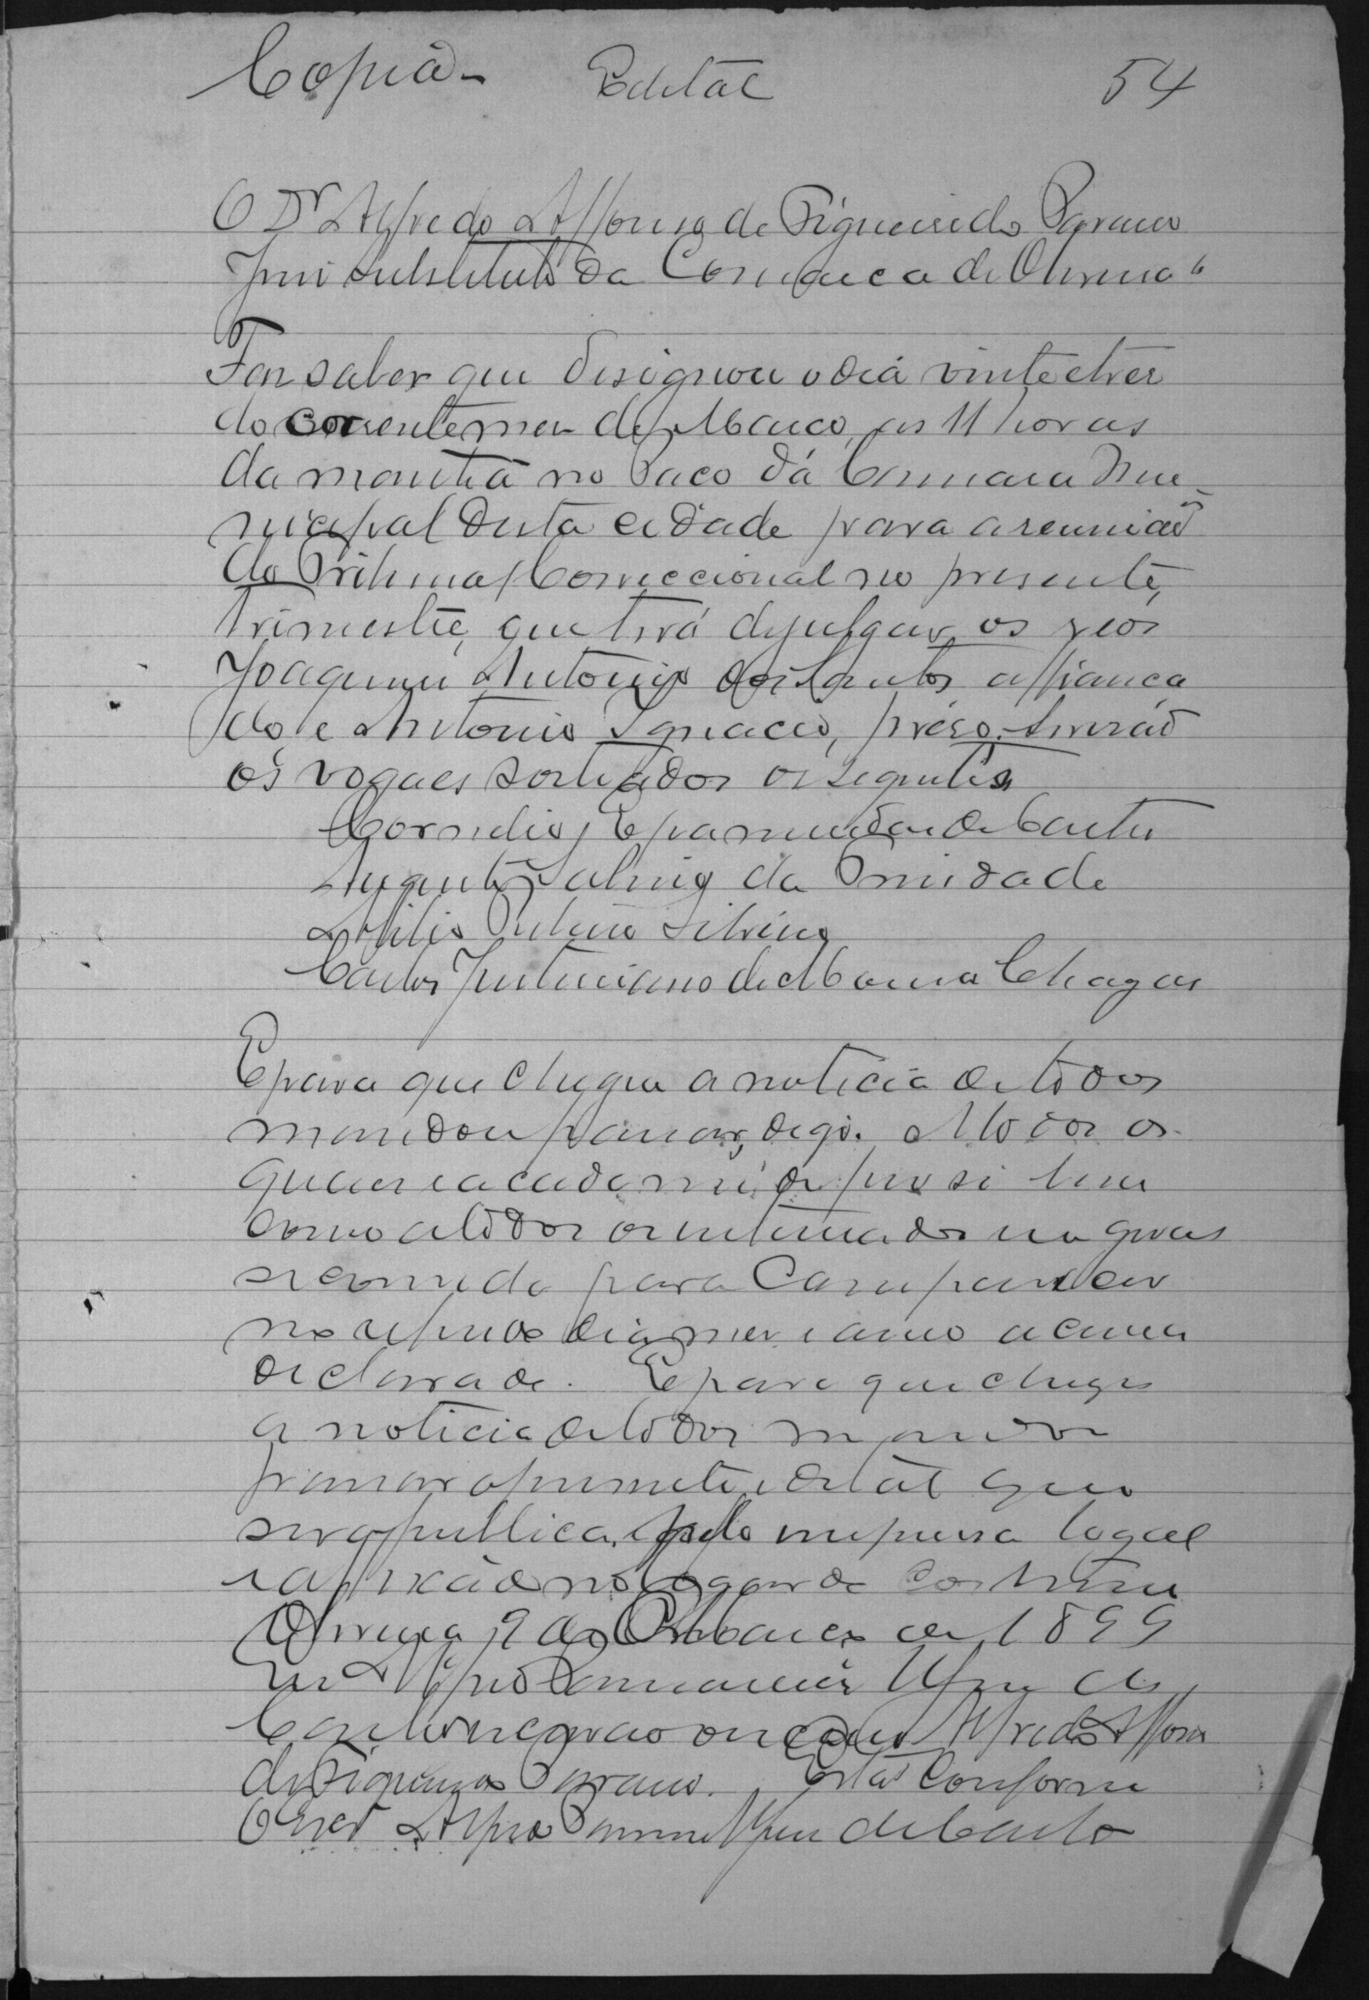 Copia - Edital 54
O Dr Alfredo Affonso de Figueiredo Paraiso
Juiz substituto da Comarca de Oliveira
Faz saber que designou o dia vinte e tres
do corrente mez de Março, as 11 horas
da manhã no Paço da Camara Mu-
nicipal desta cidade para a reunião
do Tribunal Correccional no presente
trimestre, que terá de julgar os reos
Joaquim Antonio dos Santos affiança
do e Antonio Ignacio, preso. Servirão
os vogaes sorteados os seguintes
Cornelio Epaminondas de Castro
Augusto Salino da Trindade
Silvino
Carlos Justiniano de Chagas
E para que chegue a noticia de todos
mandou passar, digo. A todos os
quaes e a cada um de per si bem
como a todos os interessados em geral
se convida para comparecer
no dia mez e anno acima
declarado. E para que chegue
a noticia de todos mandou
passar o presente edital que
será publicado pela imprensa local
e affixado no logar do costume
Oliveira 9 de Março de 1899
Eu
Castro escrivão o escrevi Alfredo Affonso
de Figueiredo Paraiso. Está conforme
O Escrão de Castro